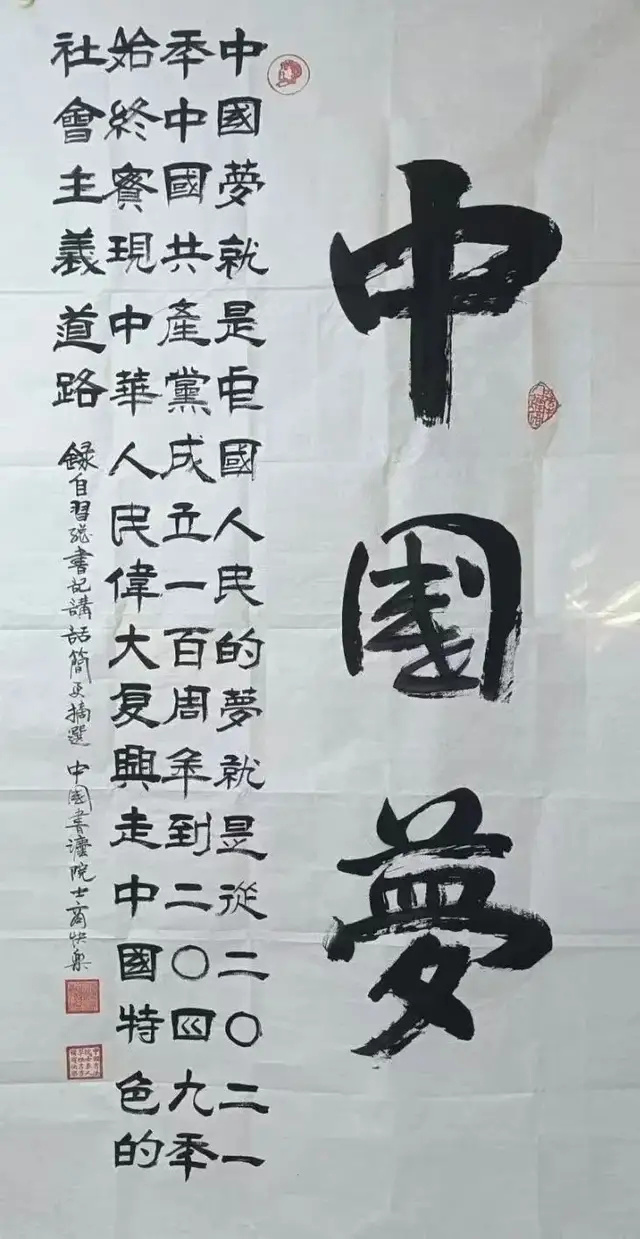 中國夢
中國夢就是中國人民的夢就是從二〇二一
年中國共產黨成立一百周年到二〇四九年
始終實現中華人民偉大复興走中國特色的
社會主義道路
錄自習總書記講話簡要摘選 中國書法院士商快樂